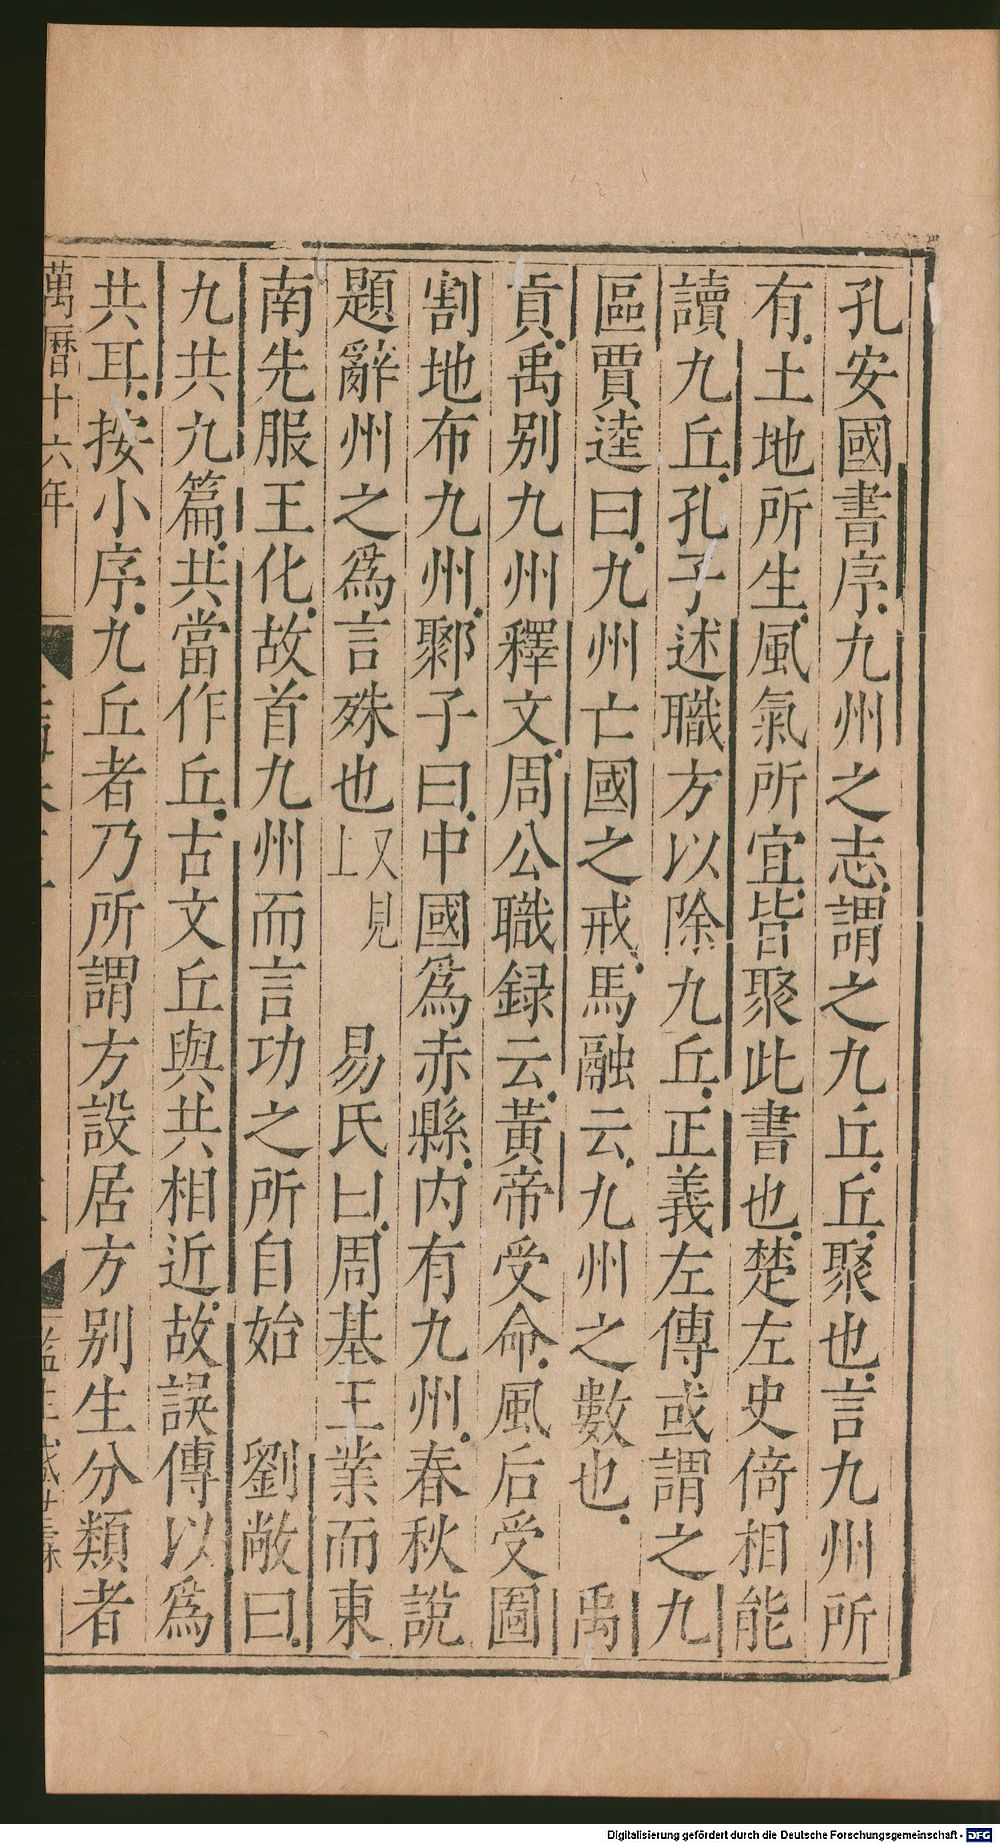 孔安國書序九州之志謂之九丘丘聚也言九州所
有土地所生風氣所宜皆聚此書也楚左史倚相能
讀九丘孔子述職方以除九丘正義左傳或謂之九
區賈逵曰九州亡國之戒馬融云九州之數也　禹
貢禹別九州釋文周公職録云黃帝受命風后受圖
割地布九州鄹子曰中國爲赤縣內有九州春秋說
題辭州之爲言殊也又見上　易氏曰周基王業而東
南先服王化故首九州而言功之所自始　劉敞曰
九共九篇共當作丘古文丘與共相近故誤傳以爲
共耳按小序九丘者乃所謂方設居方別生分類者
萬曆十六年
Digitalisierung gefördert durch die Deutsche Forschungsgemeinschaft - DFG